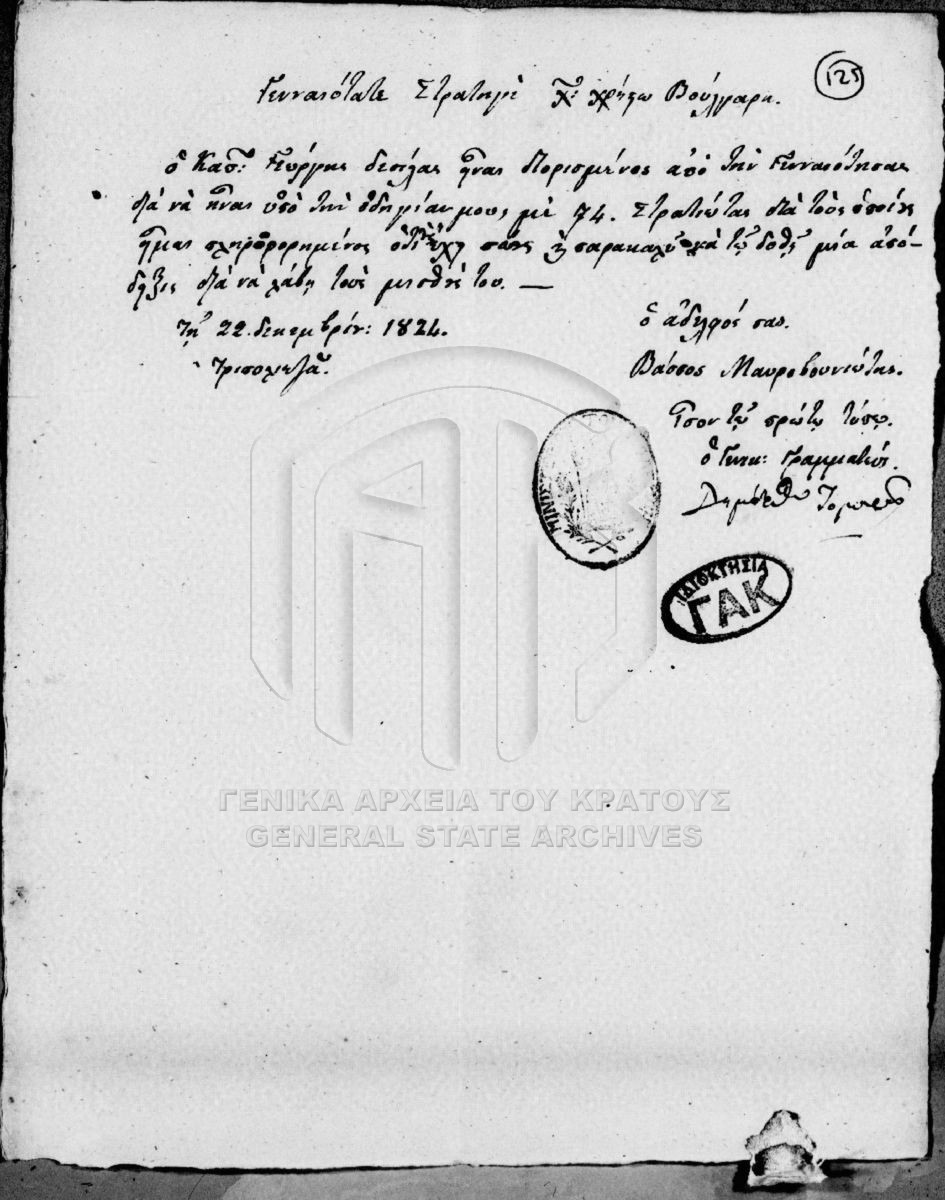 125
Γενναιότατε Στρατηγὲ χ: χρῆστο Βούλγαρη.
ὁ Καπ: Γεώργης δεσίλας ἦναι διορισμένος ἀπὸ τὴν Γενναιότησας
διὰ νὰ ἦναι ὑπὸ τὴν ὁδηγίαν μου, μὲ 74. Στρατιώτας διὰ τοὺς ὁποίους
ἦμαι πληροφορημένος ὁτὶ τοὺς ἔχη παρακαλῶ νὰ τῷ δοθῇ μία ἀπό-
δηξις διὰ νὰ λάβῃ τοὺς μισθούς του. —
τῇ 22. δεκεμβρίου: 1824.
τριπολιτζᾶ.
ὁ ἀδελφός σας.
Βάσσος Μαυροβουνιώτης.
Ἴσον τῷ πρώτῳ τύπῳ.
ὁ Γενικ: Γραμματεύς.
ΜΙΝΙΣ
ΙΔΙΟΚΤΗΣΙΑ
ΓΑΚ
ΓΕΝΙΚΑ ΑΡΧΕΙΑ ΤΟΥ ΚΡΑΤΟΥΣ
GENERAL STATE ARCHIVES